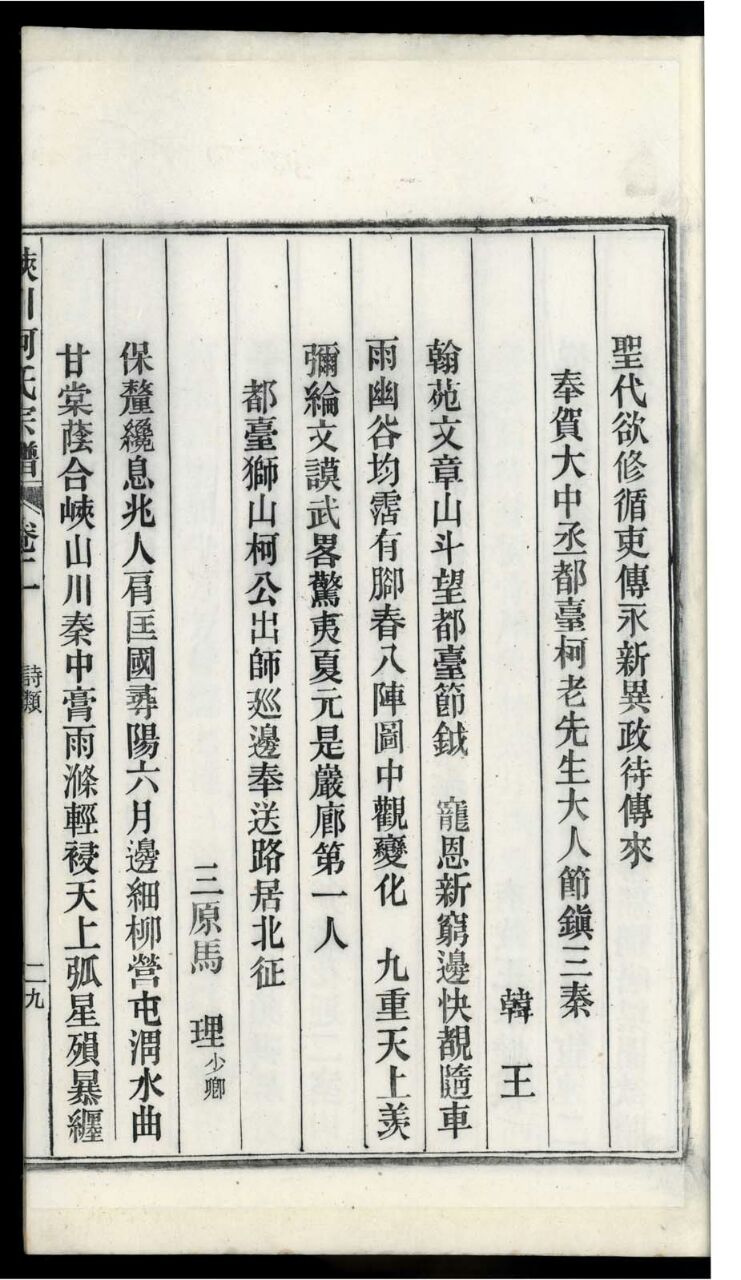 聖代欲修循吏傳永新異政待傳來
奉賀大中丞都臺柯老先生大人節鎮三秦
韓王
翰苑文章山斗望都臺節鉞　寵恩新窮邊快覩隨車
雨幽谷均霑有腳春八陣圖中觀變化　九重天上羨
彌綸文謨武畧驚夷夏元是巖廊第一人
都臺獅山柯公出師廵邊奉送路居北征
三原馬　理少卿
保釐纔息兆人肩匡國尋陽六月邊細柳營屯渭水曲
甘棠蔭合峽山川秦中膏雨滌輕祲天上弧星殞暴纏
峽川柯氏宗譜　卷二　詩類　二九